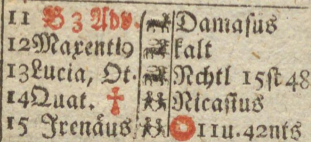 11 B 3 Adv. Damasus
12 Maxenti9 kalt
13 Lucia, Ot. Nchtl 15st48
14 Quat. † Nicasius
15 Irenäus 11u.42nts